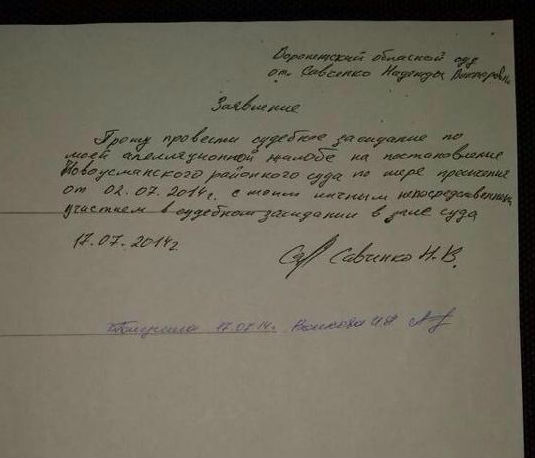 Воронежский обласной суд
от Савченко Надежды Викторовны
Заявление
Прошу провести судебное заседание по
моей апелляционной жалобе на постановление
Новоусманского районного суда по мере пресечения
от 02.07.2014г. с моим личным непосредственным
участием в судебном заседании в зале суда
17.07.2014г.
Савченко Н.В.
Получила 17.07.14г.